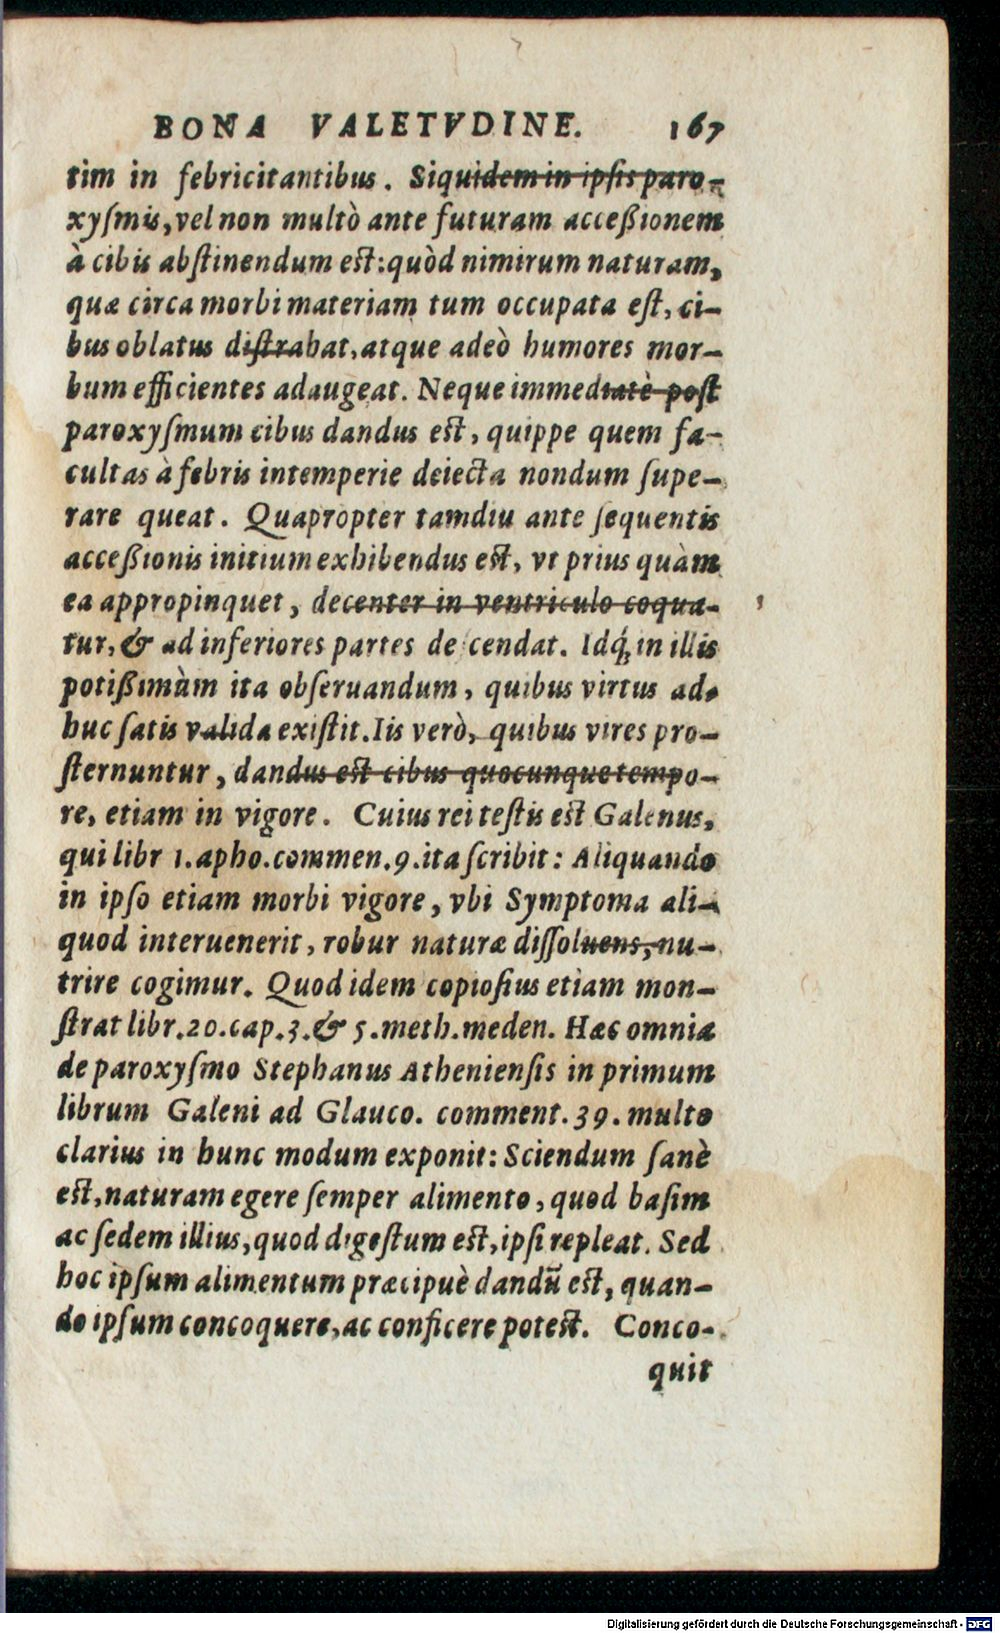 BONA VALETVDINE. 167
tim in febricitantibus. Siquidem in ipſis paro-
xyſmis, vel non multò ante futuram acceßionem
à cibis abſtinendum est: quòd nimirum naturam,
quæ circa morbi materiam tum occupata eſt, ci-
bus oblatus diſtrahat, atque adeò humores mor-
bum efficientes adaugeat. Neque immediatè poſt
paroxyſmum cibus dandus est, quippe quem fa-
cultas à febris intemperie deiecta nondum ſupe-
rare queat. Quapropter tamdiu ante ſequentis
acceßionis initium exhibendus est, vt prius quàm
ea appropinquet, decenter in ventriculo coqua-
tur, & ad inferiores partes deſcendat. Idq́; in illis
potißimùm ita obſeruandum, quibus virtus ad-
huc ſatis valida exiſtit. Iis verò, quibus vires pro-
ſternuntur, dandus est cibus quocunque tempo-
re, etiam in vigore. Cuius rei teſtis est Galenus,
qui libr 1. apho. commen. 9. ita ſcribit: Aliquando
in ipſo etiam morbi vigore, vbi Symptoma ali-
quod interuenerit, robur naturæ diſſoluens, nu-
trire cogimur. Quod idem copioſius etiam mon-
ſtrat libr. 20. cap. 3. & 5. meth. meden. Hæc omnia
de paroxyſmo Stephanus Athenienſis in primum
librum Galeni ad Glauco. comment. 39. multo
clarius in hunc modum exponit: Sciendum ſanè
est, naturam egere ſemper alimento, quod baſim
ac ſedem illius, quod digeſtum est, ipſi repleat. Sed
hoc ipſum alimentum præcipuè dandũ est, quan-
do ipſum concoquere, ac conficere potest. Conco-
quit
Digitalisierung gefördert durch die Deutsche Forschungsgemeinschaft - DFG